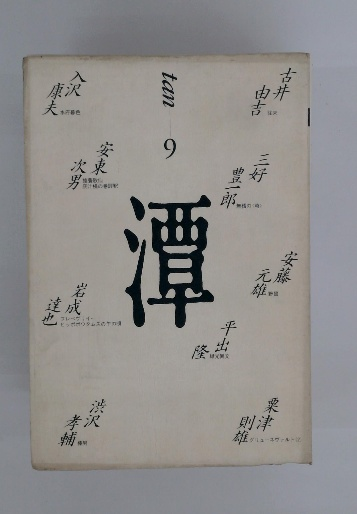 tan
9
潭
古井
由吉
三好
豊一郎
安藤
元雄
平出
隆
粟津
則雄
入沢
康夫
安東
次男
岩成
達也
渋沢
孝輔